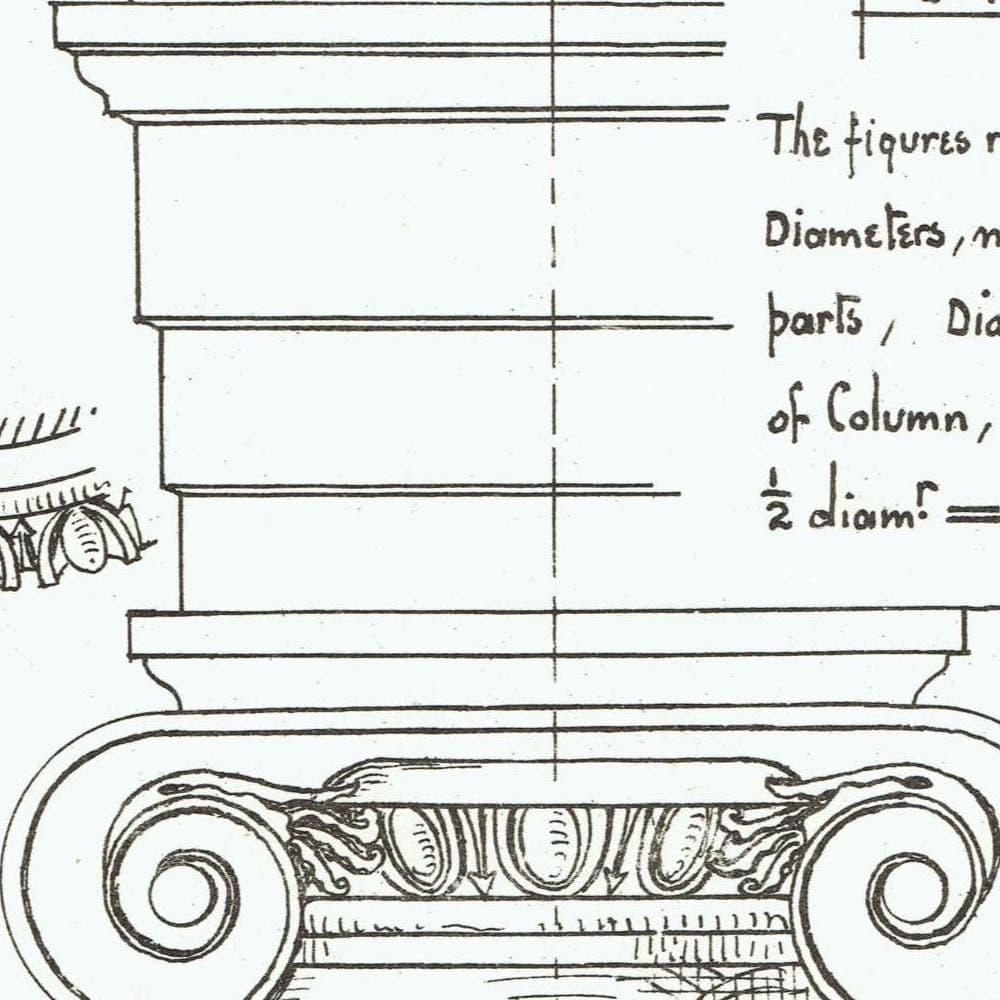 The figures
Diameters,
parts, Dia
of Column,
½ diamr. =